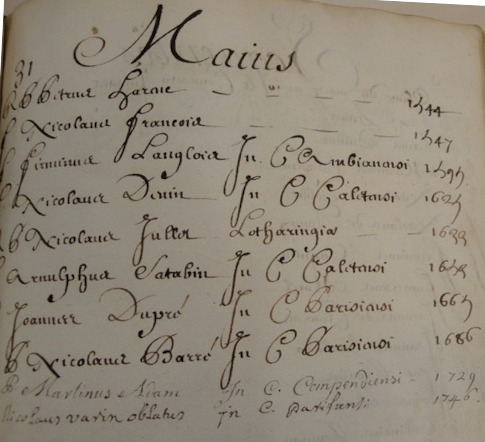 Maius
31
B Petrus Harac 1544
Nicolaus Francois 1547
Firminus Langlois In C Ambianensi 1595
Nicolaus Denin In C Caletensi 1625
B Nicolaus Jullot Lotharingia 1633
Arnulphus Satabin In C Caletensi
Joannes Dupré In C Parisiensi 1665
B Nicolaus Barré In C Parisiensi 1686
P Martinus Adam In C. Compendiensi - 1729
Nicolaus varin oblatus In C. Parisiensi 1746.